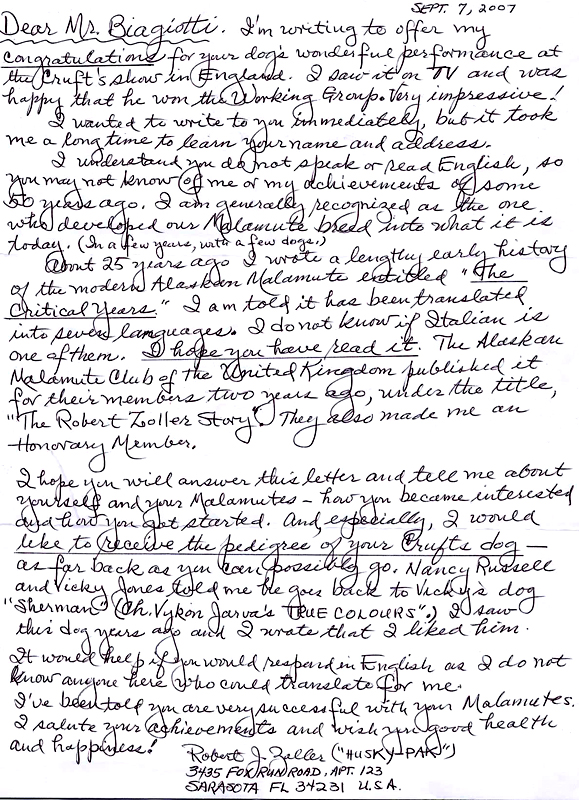 SEPT. 7, 2007
Dear Mr. Biagiotti. I'm writing to offer my
congratulations for your dog's wonderful performance at
the Cruft's show in England. I saw it on TV and was
happy that he won the Working Group. Very impressive!
I wanted to write to you immediately, but it took
me a long time to learn your name and address.
I understand you do not speak or read English, so
you may not know of me or my achievements of some
50 years ago. I am generally recognized as the one
who developed our Malamute breed into what it is
today. (In a few years, with a few dogs.)
About 25 years ago I wrote a lengthy early history
of the modern Alaskan Malamute entitled "The
Critical Years." I am told it has been translated
into seven languages. I do not know if Italian is
one of them. I hope you have read it. The Alaskan
Malamute Club of the United Kingdom published it
for their members two years ago, under the title,
"The Robert Zoller Story". They also made me an
Honorary Member.
I hope you will answer this letter and tell me about
yourself and your Malamutes – how you became interested
and how you got started. And, especially, I would
like to receive the pedigree of your Crufts dog —
as far back as you can possibly go. Nancy Russell
and Vicky Jones told me he goes back to Vicky's dog
"Sherman" (Ch. Vykon Jarva's TRUE COLOURS".) I saw
this dog years ago and I wrote that I liked him.
It would help if you would respond in English as I do not
know anyone here who could translate for me.
I've been told you are very successful with your Malamutes.
I salute your achievements and wish you good health
and happiness!
Robert J. Zoller ("HUSKY-PAK")
3435 FOX RUN ROAD, APT. 123
SARASOTA FL 34231 U.S.A.